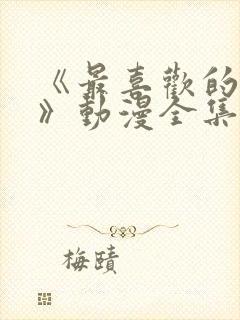 《最喜歡的
》動漫全集
梅賾